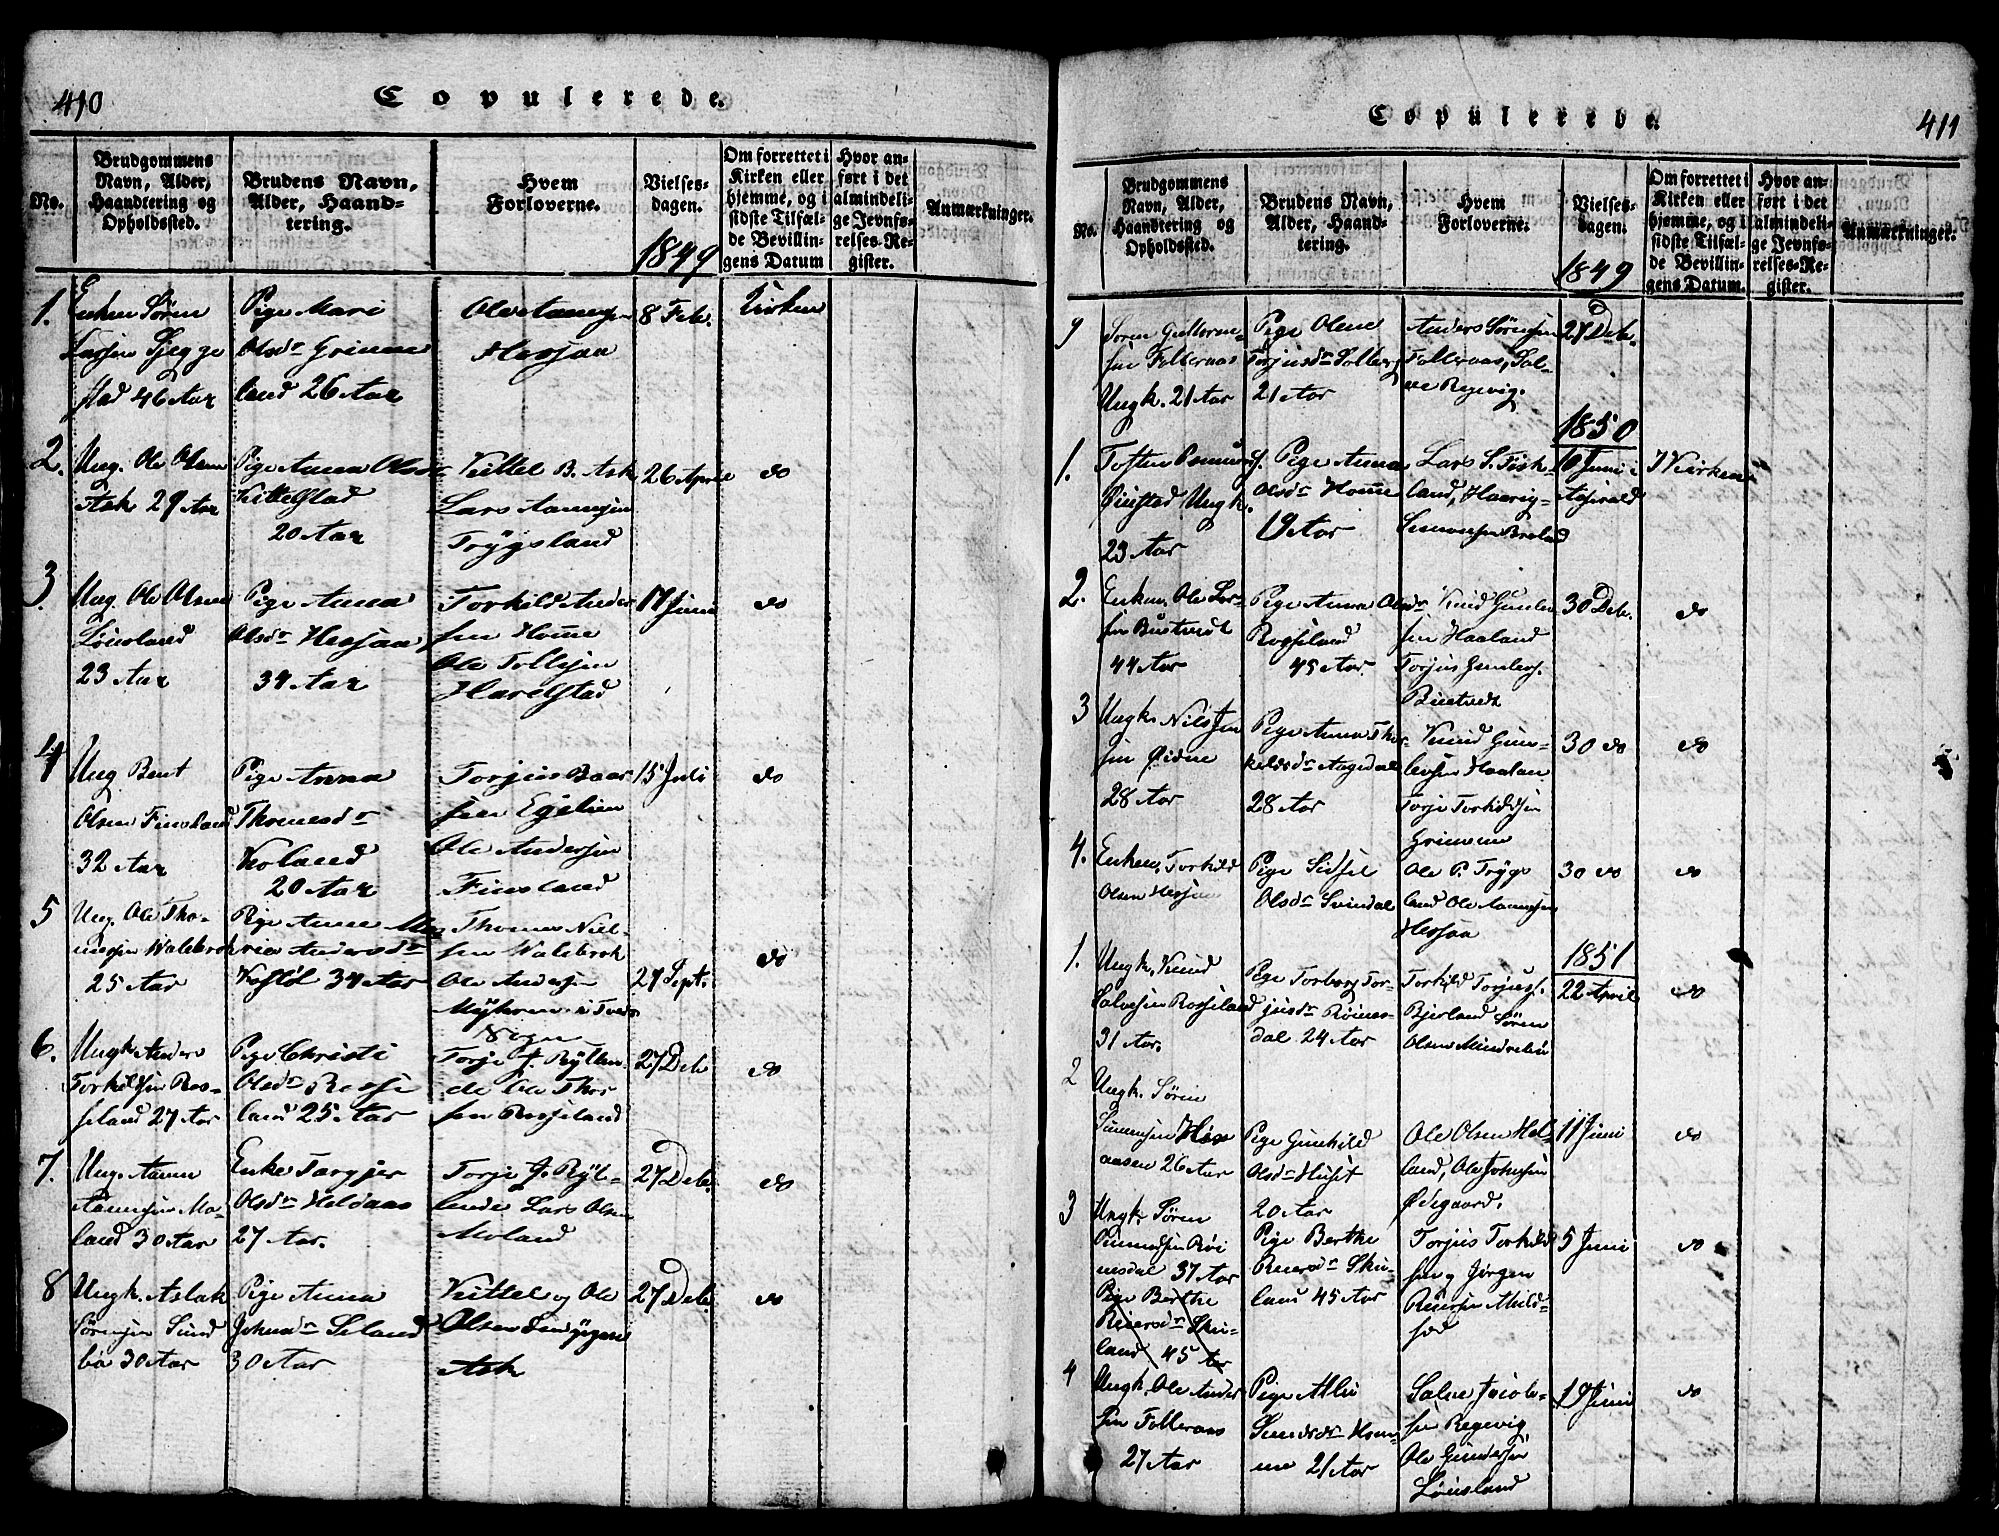 410
Copulerede.
No.
Brudgommens
Navn, Alder,
Haandtering og
Opholdssted.
Brudens Navn,
Alder, Haand-
tering.
Hvem
Forloverne.
Vielses-
dagen.
1849
Om forrettet i
Kirken eller
hjemme, og i
sidste Tilfæl-
de Bevillin-
gens Datum
Hvor an-
ført i det
almindeli-
ge Jevnfø-
relses-Re-
gister.
Anmærkninger.
1.
Enkem Søren
Larsen
stad 46 Aar
Pige Mari
Olsdr Grimme
land 26 Aar
Ole Aamsen
Hessaa
8 Feb.
Kirken
2.
Ung. Ole Olsen
Ask 29 Aar
Pige Anna Olsdr
Kittelstad
20 Aar
Kittel B. Ask
Lars Aamsen
Trygsland
26 April
do
3.
Ung. Ole Olsen
Lønsland
23 Aar
Pige Anna
Olsdr Hessaa
34 Aar
Torkild Ander
sen Home
Ole Tollefsen
Harelstad
17 Juni
do
4
Ung Bent
Olsen Finsland
32 Aar
Pige Anna
Thomesdr
Koland
20 Aar
Torjus Baar
sen
Ole Andersen
Finsland
15 Juli
do
5
Ung. Ole Tho-
massen Walebrok
25 Aar
Pige Anne Ma-
ria Andersdr
34 Aar
Thomas Niel-
sen Walebrok
Ole Andersen
Myhren i Tveds
Sogn
27 Sept.
do
6.
Ungk. Anders
Torkildsen Ros-
seland 27 Aar
Pige Christi
Olsdr Rosse
land 25 Aar
Torje J. Ryllen
de Ole Thor
sen Rosseland
27 Deb
do
7.
Ung. Aanen
Aanensen Mo-
land 30 Aar
Enke Targjer
Olsdr Heldaas
27 Aar.
Torje J. Ryl-
lende Lars Olsen
Moland
27 Deb.
do
8
Ungk. Aslak
Sørensen Sund
bø 30 Aar
Pige Anna
Johnsdr Seland
30 Aar
Kittel og Ole
Olsen
Ask
27 Deb.
do
411
Copulerede.
No.
Brudgommens
Navn, Alder,
Haandtering og
Opholdssted.
Brudens Navn,
Alder, Haand-
tering.
Hvem
Forloverne.
Vielses-
dagen.
1849
Om forrettet i
Kirken eller
hjemme, og i
sidste Tilfæl-
de Bevillin-
gens Datum.
Hvor an-
ført i det
almindeli-
ge Jevnfø-
relses-Re-
gister.
Anmærkninger.
9
Søren Gutterm-
sen Folleraas
Ungk. 21 Aar
Pige Olene
Torjusdr Solberg
21 Aar
Anders Sørensen
Folleraas, Sal-
ve Regevig.
27 Deb.
1850
1.
Øiestad Ungk.
23 Aar
Pige Anna
Olsdr Home
19 Aar
Lars S. Fisk-
land,
10 Juni i
I Kirken
2.
Enkem. Ole Lar-
sen Bustvedt
44 Aar
Pige Anna Olsdr
Rosseland
45 Aar
Knud Gunler
sen Haaland
Torjus Gunders.
Bustvedt
30 Deb.
do
3
Ungk. Nils Jen
sen Øidne
28 Aar
Pige Anna Thor-
keldsdr Aagedal
28 Aar
Knud Gun-
lersen Haalan
Torje Torkildsen
Grimeim
30 do
do
4.
Enkem. Torkild
Olsen Hessaa
Pige Sidsel
Olsdr Svindal
Ole P. Trygs
land Ole Aamsen
Hessaa
30 do
do
1851
1.
Ungk. Knud
Salvesen Rosseland
31 Aar.
Pige Torborg Tor-
jusdr Røines-
dal 24 Aar
Torkild Torjuss.
Bjerland Søren
Olsen
22 April
do
2
Ungk. Søren
aasen 26 Aar
Pige Gunhild
Olsdr Huset
20 Aar
Ole Olsen Hol-
land, Ole Johnsen
Ødegaard.
11 Juni
do
3
Ungk. Søren
Gunnulsen Røi
nesdal 37 Aar
Pige Berthe
Reiersdr Sku-
land 45 Aar
Pige Berthe
Reiersdr Sku-
land 45 Aar
Torjus Torkild
sen og Jørgen
Reiersen
5 Juni
do
4
Ungk. Ole Ander
sen Folleraas
27 Aar
Pige Allis
Hom-
me 21 Aar
Salve Jacob-
sen Regevig
Ole Gundersen
Lønsland
19 Juni
do